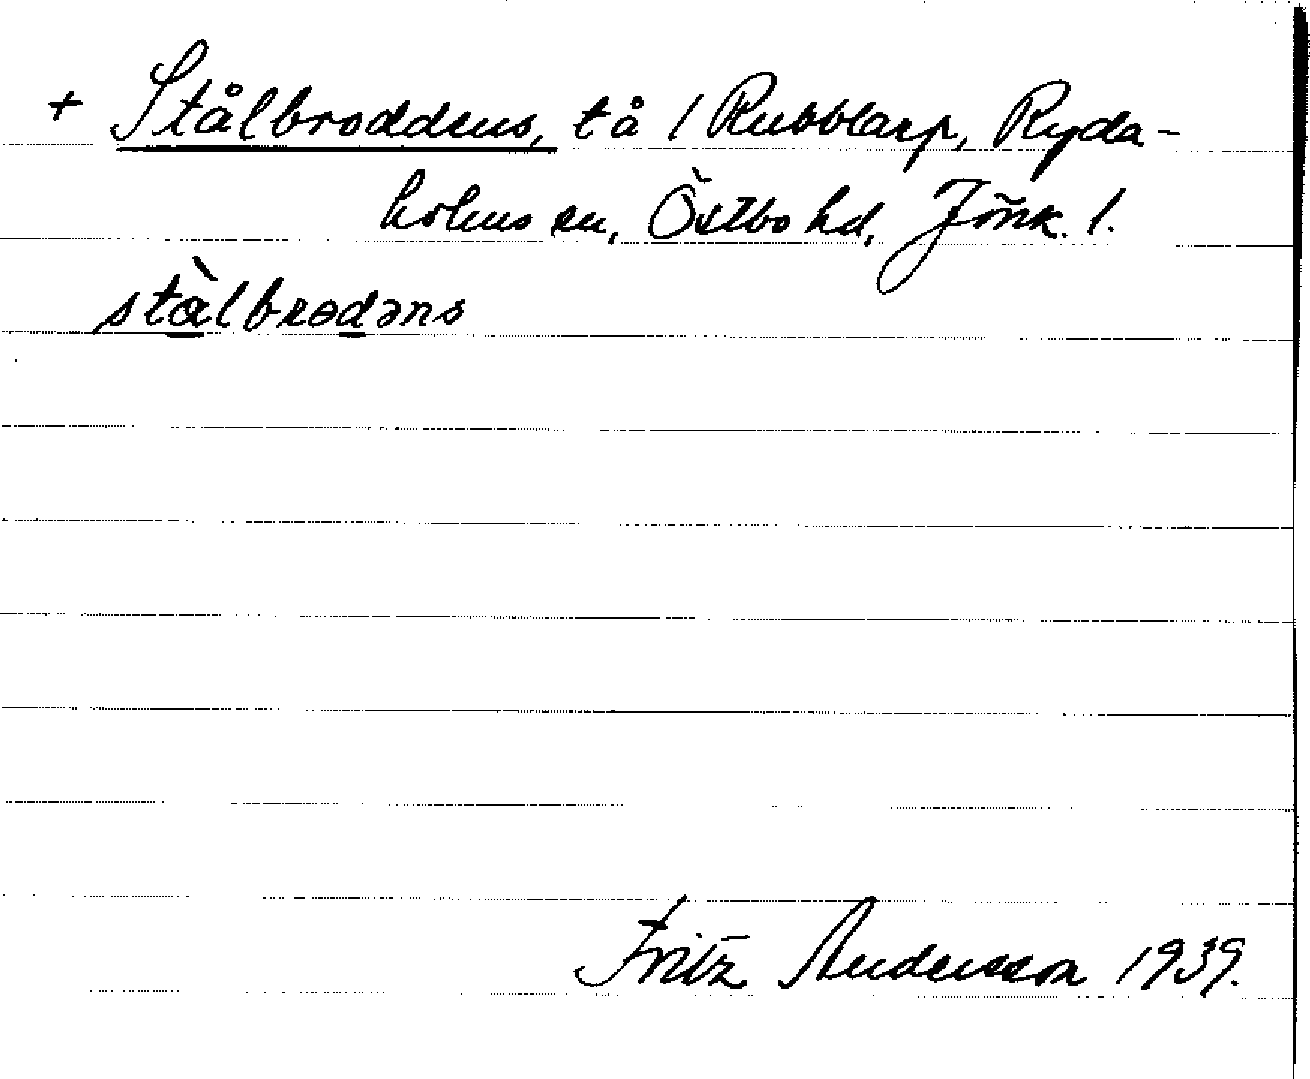 + Stålbroddens, tå / Rubbtarp, Ryda-
holms sn, Östbo hd, Jönk. l.
stàlbrodəns
Fritz Andersson 1939.